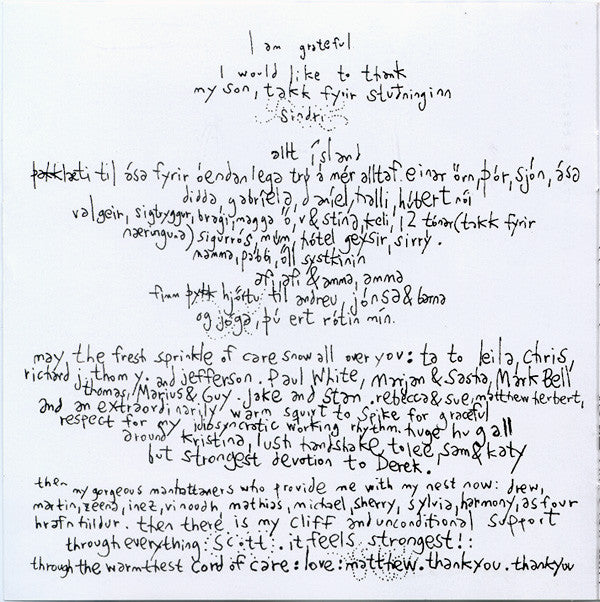 I am grateful
I would like to thank
my son, takk fyrir stuðninginn
sindri
allt ísland
þakklæti til ása fyrir óendanlega trú á mér alltaf. einar örn, þór, sjón, ása
didda, gabríela, daníel, halli, húbert nói
valgeir, sigtryggur, bragi, magga ö, v & stína, keli, 12 tónar (takk fyrir
næringuna) sigurrós, múm, hótel geysir, sirry.
mamma, pabbi, öll systkinin
afi, afi & amma, amma
fimm hjörtu til andreu, jónsa & barna
og jóga, þú ert rótin mín.
may the fresh sprinkle of care snow all over you: ta to leila, chris,
richard j. thom y. and jefferson. Paul White, Marjan & Sasha, Mark Bell
thomas, Marius & Guy. Jake and Stan. rebecca & sue, matthew herbert,
and an extraordinarily warm squirt to Spike for graceful
respect for my idiosyncratic working rhythm. huge hug all
around kristina, lush handshake to lee, sam & katy
but strongest devotion to Derek.
then my gorgeous manhattaners who provide me with my nest now: drew,
martin, zeena, inez, vinoodh, mathias, michael, sherry, sylvia, harmony, as four
hrafnhildur. then there is my cliff and unconditional support
through everything: scott. it feels strongest!:
through the warmthest cord of care: love: matthew. thankyou. thankyou